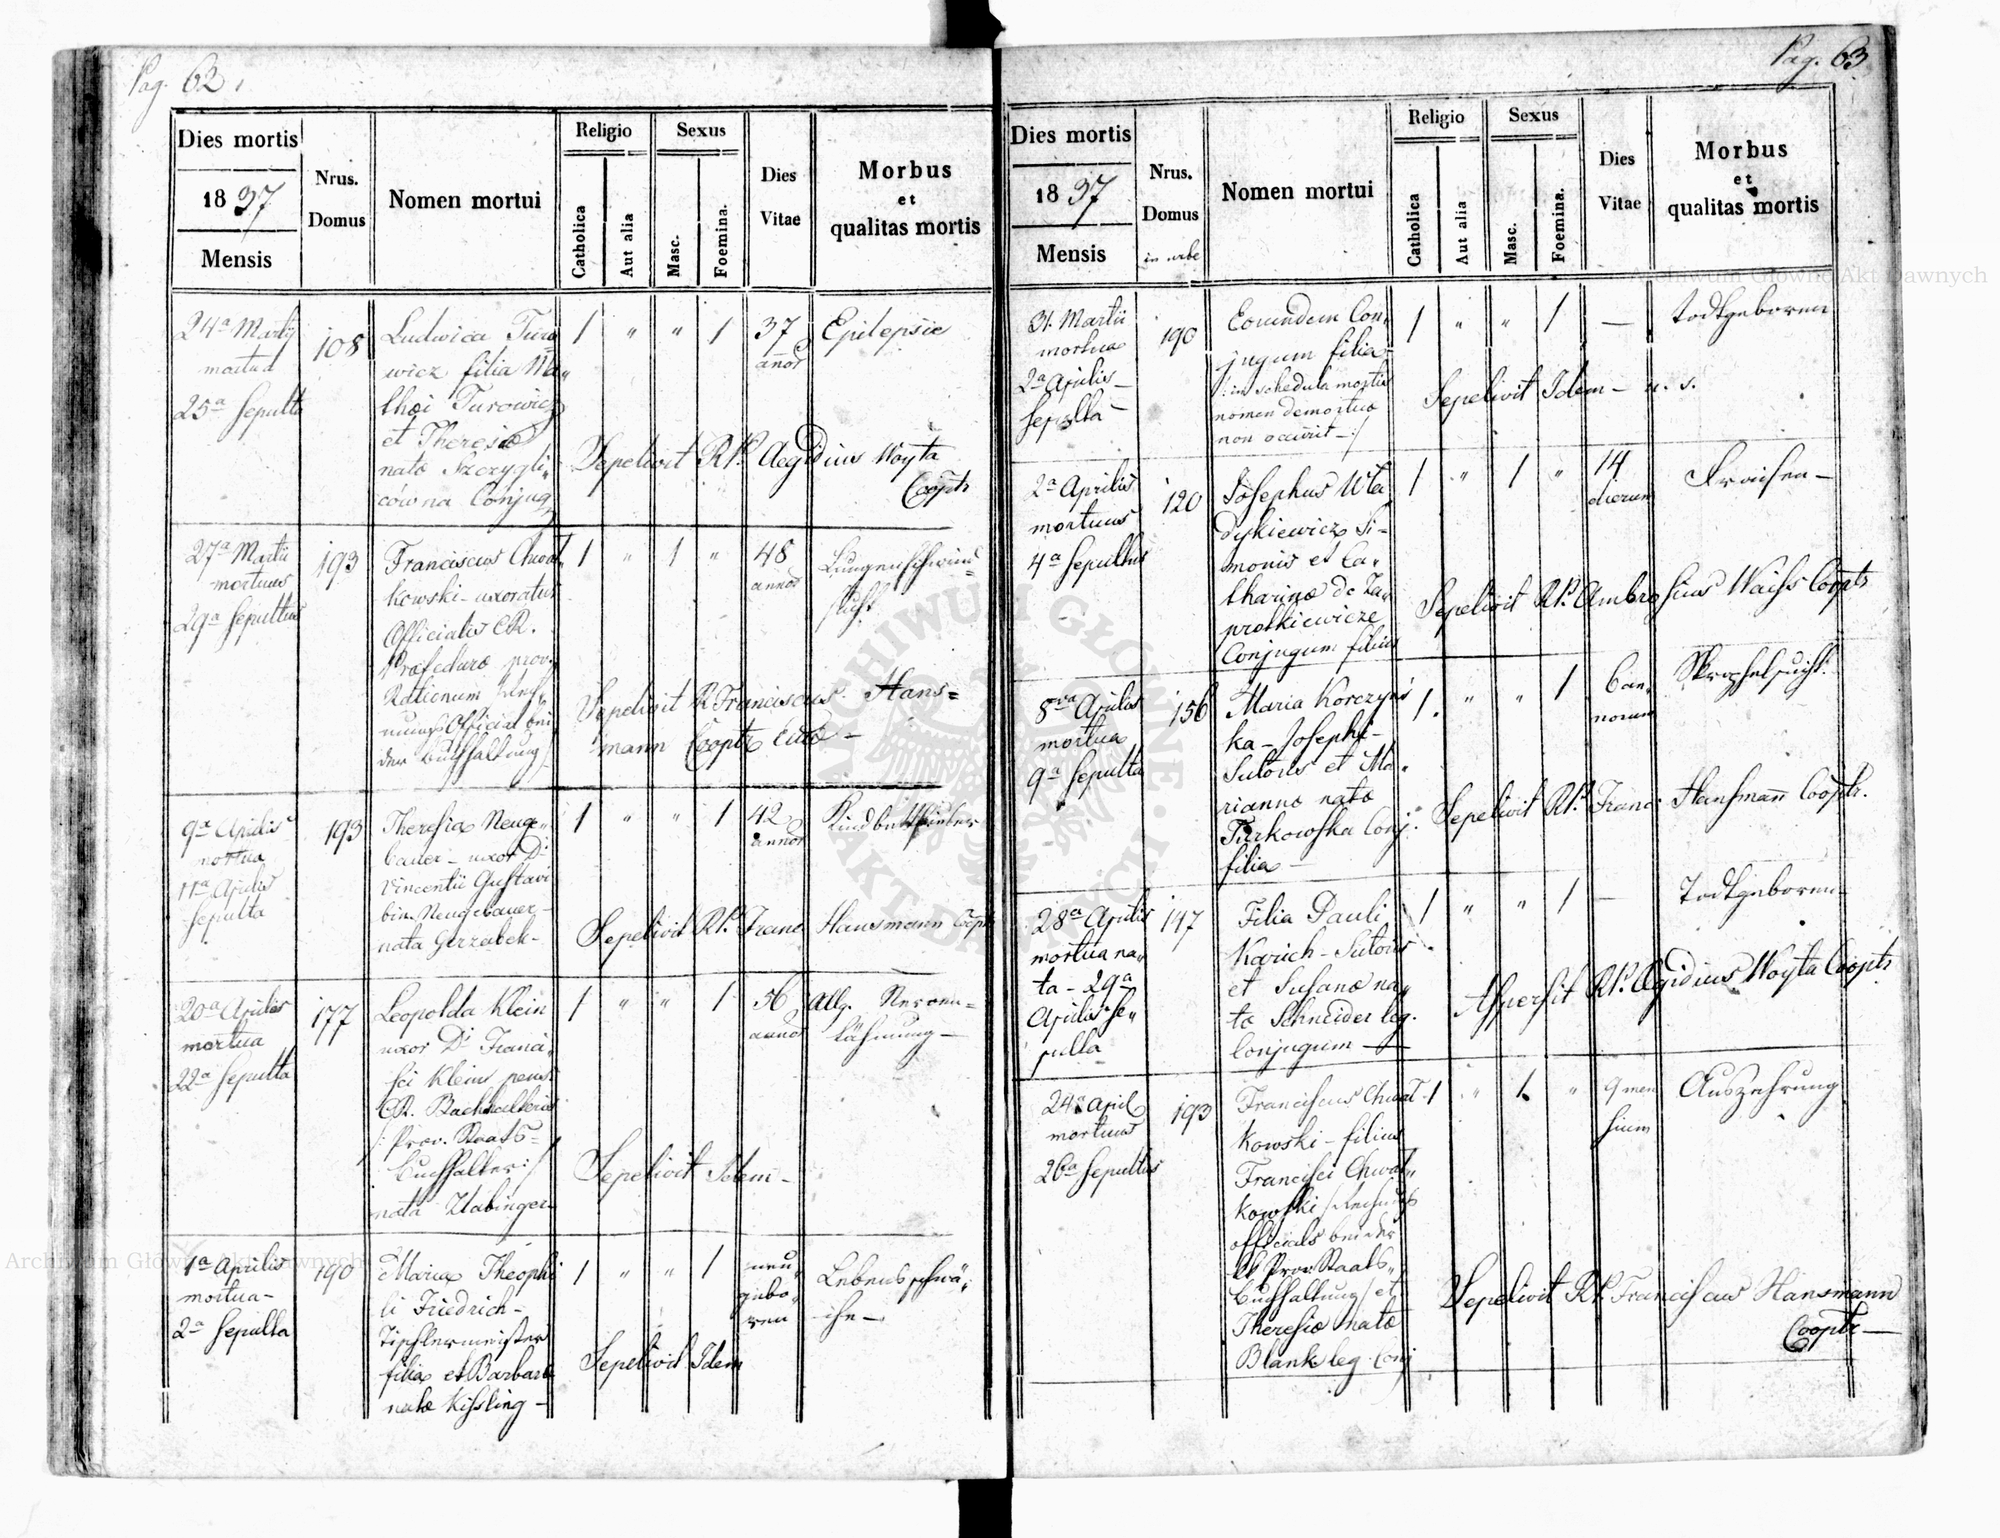 Pag. 62
Dies mortis
1837
Mensis
Nrus.
Domus
Nomen mortui
Religio
Catholica
Aut alia
Sexus
Masc.
Foemina.
Dies
Vitae
Morbus
et
qualitas mortis
24a Martii
mortua
25a Sepulta
108
Ludwica Turo
wicz filia Ma„
thæi Turowicz
et Theresiæ
natæ Szczygli„
cówna Conjug
1 „ „ 1
37
annor
Epilepsie
Sepelivit RP. Aegidius Woyta
Cooptr
27a Martii
mortuus
29a Sepultus
193
Franciscus Chwat„
kowski - uxoratus
Officialis CR.
Præfecturæ prov.
Rationum
der Buchhaltung
1 „ 1 „
48
annor
Lungenschwind=
sucht
Sepelivit R Franciscus Hans=
mann Cooptr
9a Aprilis
mortua
11a Aprilis
Sepulta
193
Theresia Neuge„
bauer - uxor Di
Vincentii Gustavi
bin. Neugebauer -
nata Gerzabek -
1 „ „ 1
42
annor
Kindbettfieber
Sepelivit RP. Franc. Hansmann Cooptr
20a Aprilis
mortua
22a Sepulta
177
Leopolda Klein
uxor Di Franci„
sci Klein pens.
CR. Buchhalteriæ
/: Prov. Staats=
Buchhalter :/
nata Habinger
1 „ „ 1
56
annor
Allg. Nerven=
lähmung -
Sepelivit Idem -
1a Aprilis
mortua -
2a Sepulta
190
Maria Theophi
li Friedrich -
Tischlermeister
filia et Barbaræ
natæ Kissling -
1 „ „ 1
neu„
gebo„
ren
Lebensschwä„
che -
Sepelivit Idem
Pag. 63
Dies mortis
1837
Mensis
Nrus.
Domus
in urbe
Nomen mortui
Religio
Catholica
Aut alia
Sexus
Masc.
Foemina.
Dies
Vitae
Morbus
et
qualitas mortis
31. Martii
mortua
2a Aprilis -
Sepulta -
190
Eorundem Con„
jugum filia
/: in schedula mortis
nomen demortuæ
non occurrit - :/
1 „ „ 1
—
todtgeboren
Sepelivit Idem - u. s.
2a Aprilis
mortuus
4a Sepultus
120
Josephus Wła
dykiewicz Si-
monis et Ca„
tharinæ de Za„
protkiewicze
Conjugum filius
1 „ 1 „
14
dierum
Fraisen -
Sepelivit RP. Ambrosius Waiss Cooptr
8va Aprilis
mortua
9a Sepulta
156
Maria Korczyńs
ka - Josephi -
Sutoris et Ma„
riannæ natæ
Turkowska Conj.
filia -
1 „ „ 1
6 an„
norum
Skrophelsucht.
Sepelivit RP. Franc. Hansmann Cooptr.
28a Aprilis
mortua na„
ta - 29a
Aprilis Se„
pulta
147
Filia Pauli
Karich - Sutoris
et Susanæ na„
ta Schneider leg.
Conjugum —
1 „ „ 1
—
Todtgeboren -
Aspersit RP. Aegidius Woyta Cooptr
24a April
mortuus
26a Sepultus
193
Franciscus Chwat-
kowski - filius
Francisci Chwat„
kowski / Rechnungs
officials bei der
kk Prov. Staats„
buchhaltung / et
Theresiæ natæ
Blank leg. Conj
1 „ 1. „
9 men
sium
Auszehrung
Sepelivit RP. Franciscus Hansmann
Cooptr —
Archiwum Główne Akt Dawnych
Archiwum Główne Akt Dawnych
ARCHIWUM GŁÓWNE AKT DAWNYCH